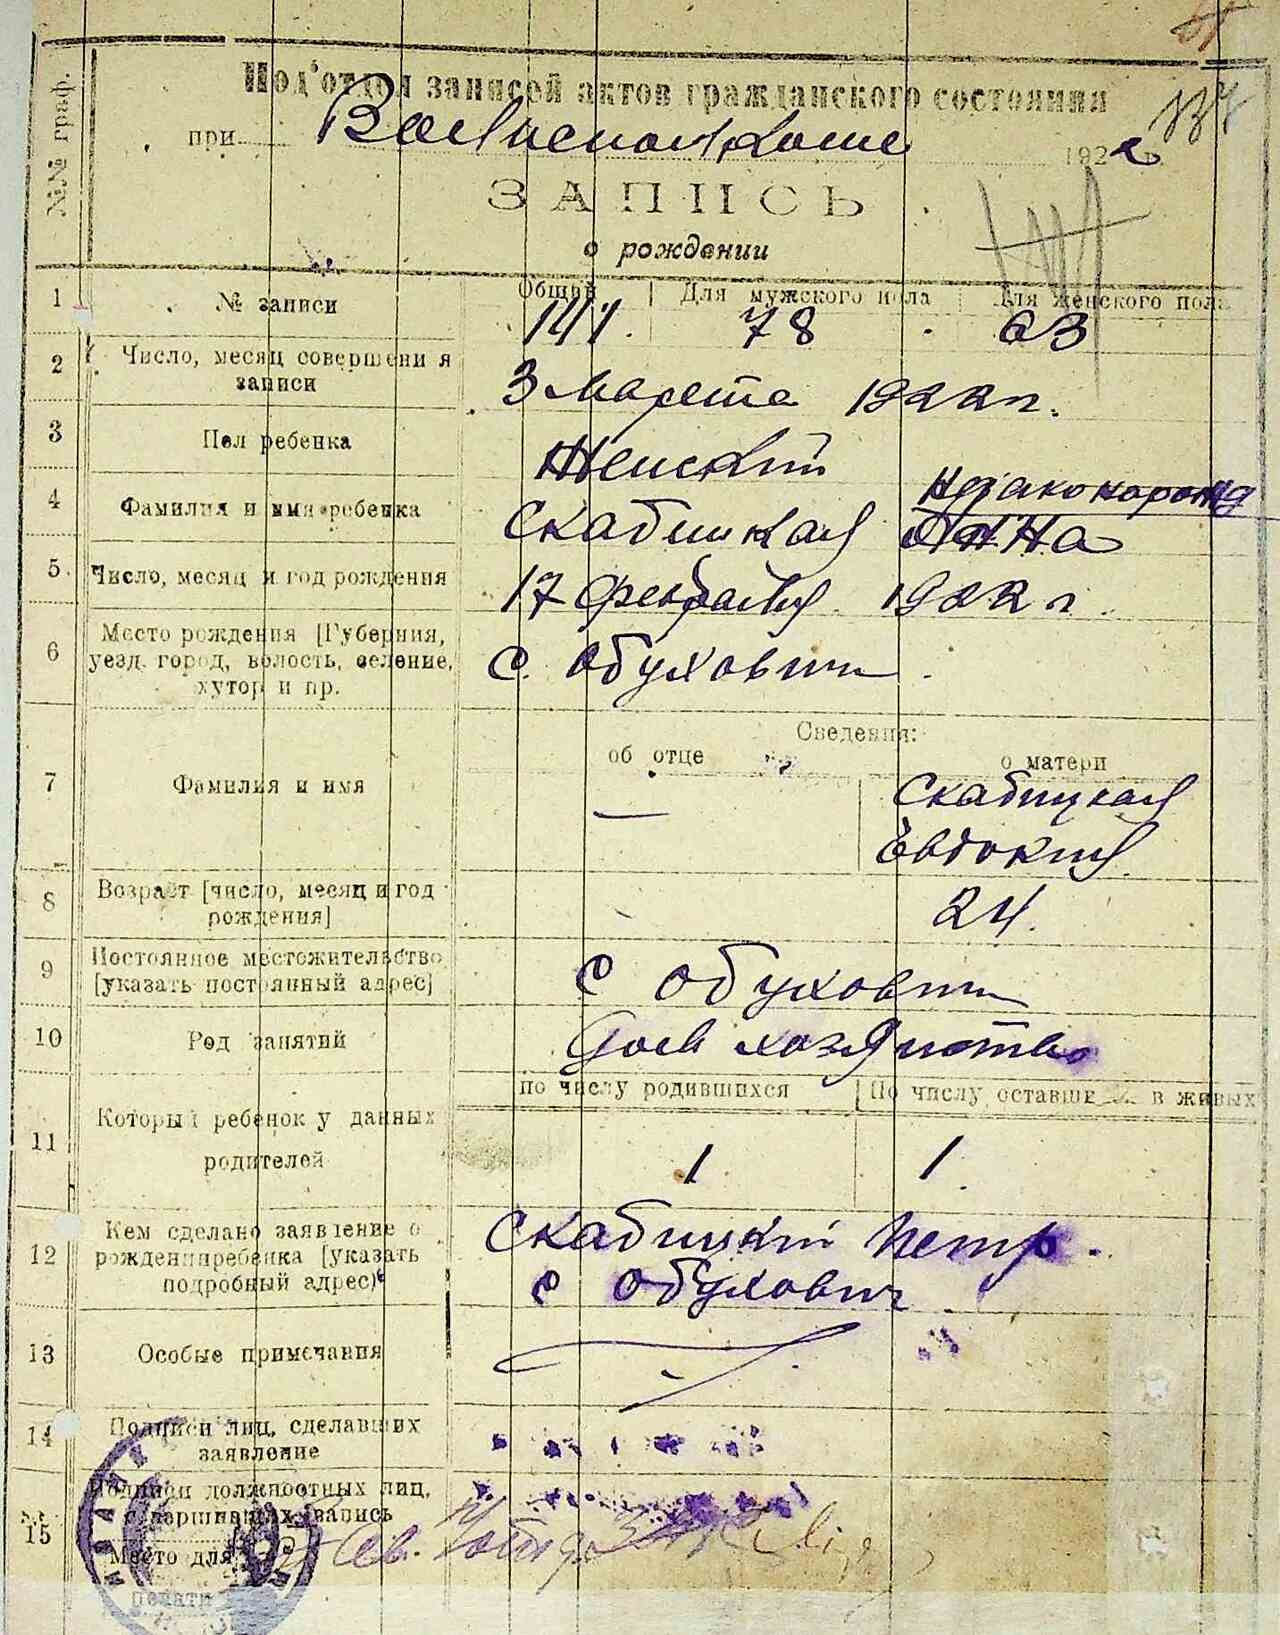 №№ граф.
Под'отдел записей актов гражданского состояния
при Волисполкоме 1922 г.
ЗАПИСЬ
о рождении
1 № записи Общий Для мужского пола Для женского пола
141. 78 63
2 Число, месяц совершения записи 3 марта 1922 г.
3 Пол ребенка Женский
4 Фамилия и имя ребенка Скабицкая Анна
5. Число, месяц и год рождения 17 февраля 1922 г.
6 Место рождения [Губерния,
уезд, город, волость, селение,
хутор и пр. с. Обуховичи
Сведения:
об отце о матери
7 Фамилия и имя — Скабицкая
Евдокия
8 Возраст [число, месяц и год
рождения] 24.
9 Постоянное местожительство
[указать постоянный адрес] с Обуховичи
10 Род занятий
по числу родившихся По числу оставши в живых
11 Который ребенок у данных
родителей 1 1
12 Кем сделано заявление о
рождении ребенка [указать
подробный адрес) Скабицкий Петр.
с Обухович
13 Особые примечания
14 Подписи лиц, сделавших
заявление
15 Подписи должностных лиц,
совершивших запись
Место для
печати